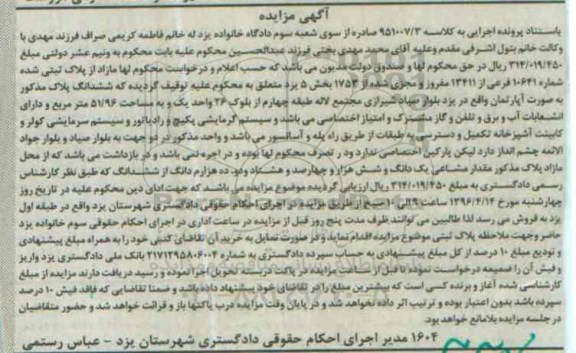 آگهی مزایده
باستناد پرونده اجرایی به کلاسه ۹۵۱۰۰۷/۳ صادره از سوی شعبه سوم دادگاه خانواده یزد له خانم فاطمه کریمی صراف فرزند مهدی با
وکالت خانم بتول اشرفی مقدم وعلیه آقای محمد مهدی بختی فرزند عبدالحسین محکوم علیه بابت محکوم به ونیم عشر دولتی مبلغ
۳۱۴/۰۱۹/۴۵۰ ریال در حق محکوم لها و صندوق دولت مدیون می باشد که حسب اعلام و درخواست محکوم لها مازاد از پلاک ثبتی شده
شماره ۱۰۶۴۱ فرعی از ۱۳۴۱۱ مفروز و مجزی شده از ۱۷۵۴ بخش ۵ یزد متعلق به محکوم علیه توقیف گردیده که ششدانگ پلاک مذکور
به صورت آپارتمان واقع در یزد بلوار صیاد شیرازی مجتمع لاله طبقه چهارم از بلوک ۲۶ واحد یک و به مساحت ۵۱/۹۶ متر مربع و دارای
انشعابات آب و برق و تلفن و گاز مشترک و امتیاز اختصاصی می باشد و سیستم گرمایشی پکیج و رادیاتور و سیستم سرمایشی کولر و
کابینت آشپزخانه تکمیل و دسترسی به طبقات از طریق راه پله و آسانسور می باشد و واحد مذکور در دو جهت به بلوار صیاد و بلوار جواد
الائمه چشم انداز دارد لیکن پارکین اختصاصی ندارد ودر تصرف محکوم لها بوده و در اجره نمی باشد و در بازداشت می باشد که از محل
مازاد پلاک مذکور مقدار مشاعی یک دانگ و شش هزار و چهارصد و هشتاد ودو، ده هزارم دانگ از ششدانگ که طبق نظر کارشناس
رسمی دادگستری به مبلغ ۳۱۴/۰۱۹/۴۵۰ ریال ارزیابی گردیده موضوع مزایده می باشد که جهت ادای دین محکوم علیه در تاریخ روز
چهارشنبه مورخ ۱۳۹۶/۴/۱۴ ساعت ۹ الی ۱۰ صبح از طریق مزایده در اجرای احکام حقوقی دادگستری شهرستان یزد واقع در طبقه اول
یزد به فروش می رسد لذا طالبین می توانند ظرف مدت پنج روز قبل از مزایده در ساعت اداری در اجرای احکام حقوقی سوم خانواده یزد
حاضر وجهت ملاحظه پلاک ثبتی موضوع مزایده اقدام نماید و در صورت تمایل به خرید آن تقاضای کتبی خود را به همراه مبلغ پیشنهادی
و تودیع مبلغ ۱۰ درصد از کل مبلغ پیشنهادی به حساب سپرده دادگستری به شماره ۲۱۷۱۲۹۵۸۰۶۰۰۴ بانک ملی دادگستری یزد واریز
و فیش آن را ضمیمه درخواست نموده تا قبل از ساعت مزایده در پاکت دربسته تحویل اجرا نموده و رسید دریافت دارند مزایده از مبلغ
کارشناسی شده آغاز و برنده کسی است که بیشترین مبلغ را در تقاضای خود پیشنهاد داده باشد و ضمنا تقاضایی که فاقد فیش ۱۰ درصد
سپرده باشد بدون اعتبار بوده و ترتیب اثر داده نخواهد شد و در پایان وقت مزایده درب پاکتها باز و قرائت خواهد شد و حضور متقاضیان
در جلسه مزایده بلامانع خواهد بود.
۱۶۰۴ مدیر اجرای احکام حقوقی دادگستری شهرستان یزد - عباس رستمی